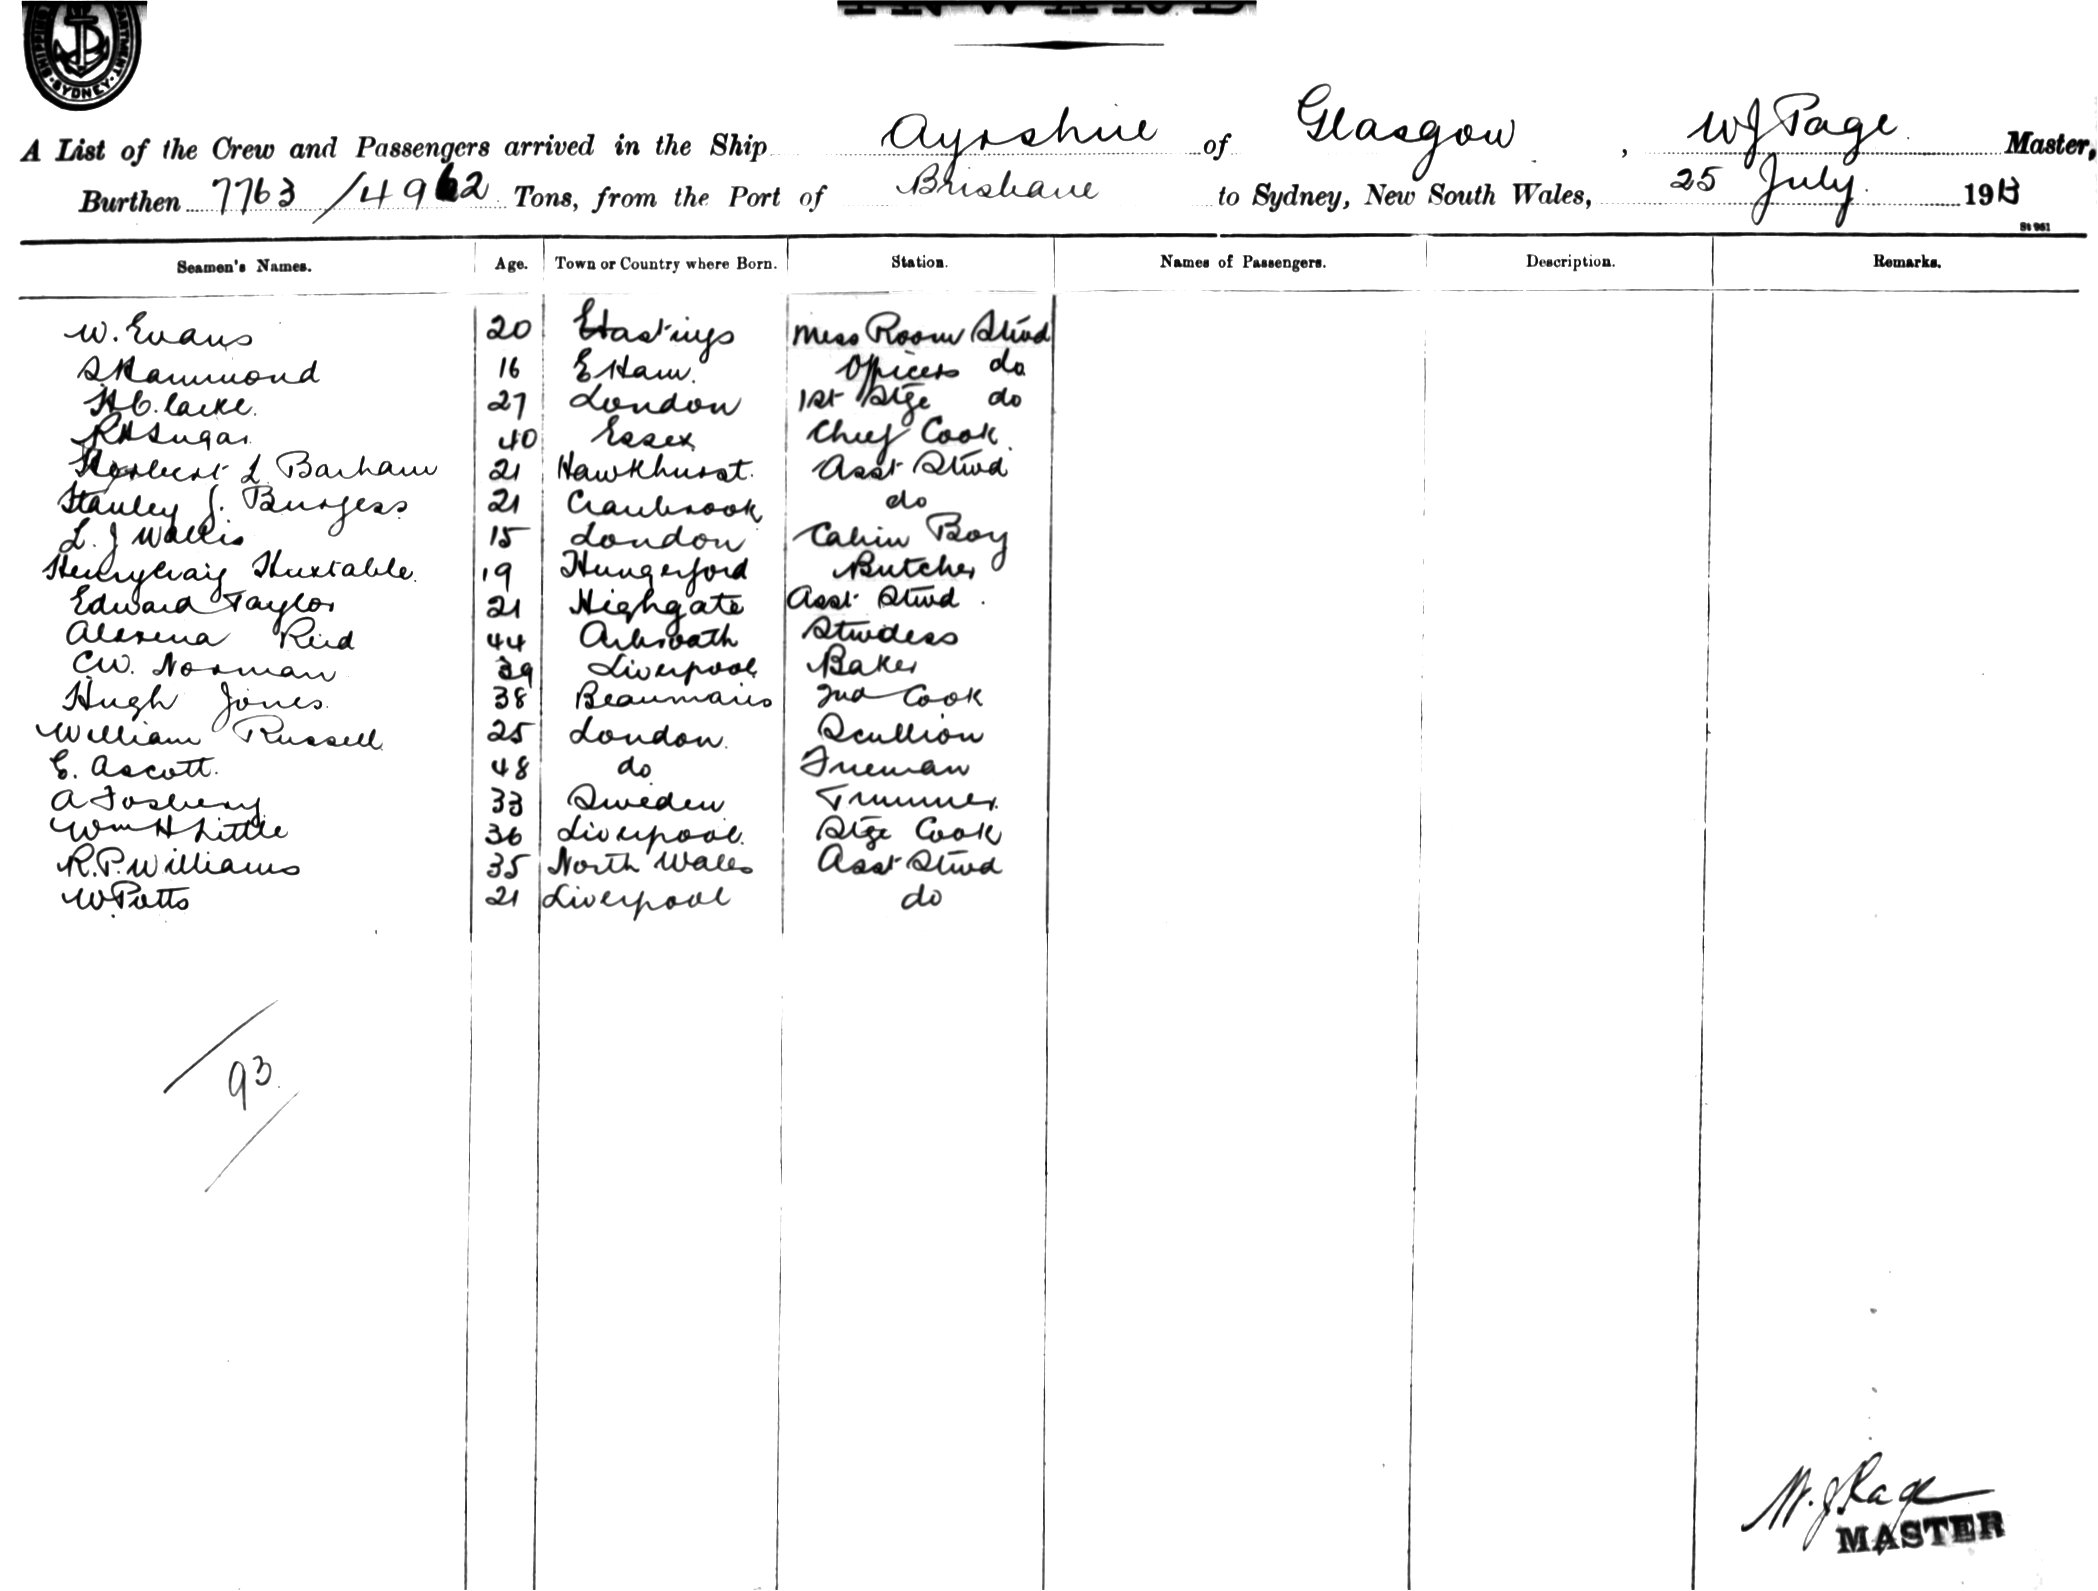 INWARD
SHIPPING DEPARTMENT. SYDNEY
A List of the Crew and Passengers arrived in the Ship Ayrshire of Glasgow, WJ Page Master,
Burthen 7763/4962 Tons, from the Port of Brisbane to Sydney, New South Wales, 25 July. 1913
St 961
Seamen's Names. Age. Town or Country where Born. Station. Names of Passengers. Description. Remarks.
W. Evans 20 Hastings Mess Room Stwd
S Hammond 16 E Ham. Officers do
H.C. 27 London 1st Stge do
R H Sugar 40 Essex Chief Cook
Herbert L Barham 21 Hawkhurst. Asst Stwd
Stanley J. Burgess 21 Cranbrook do
L. J Wallis 15 London Cabin Boy
Henry Craig Huxtable. 19 Hungerford Butcher
Edward Taylor 21 Highgate Asst Stwd.
Reid 44 Arbroath Stwdess
CW. Norman 39 Liverpool Baker
Hugh Jones 38 Beaumaris 2nd Cook
William Russell 25 London. Scullion
E. Ascott. 48 do Fireman
A Fosberry 33 Sweden Trimmer
Wm H Little 36 Liverpool. Stge Cook
R.P. Williams 35 North Wales Asst Stwd
W Potts 21 Liverpool do
93
W. J Page
MASTER